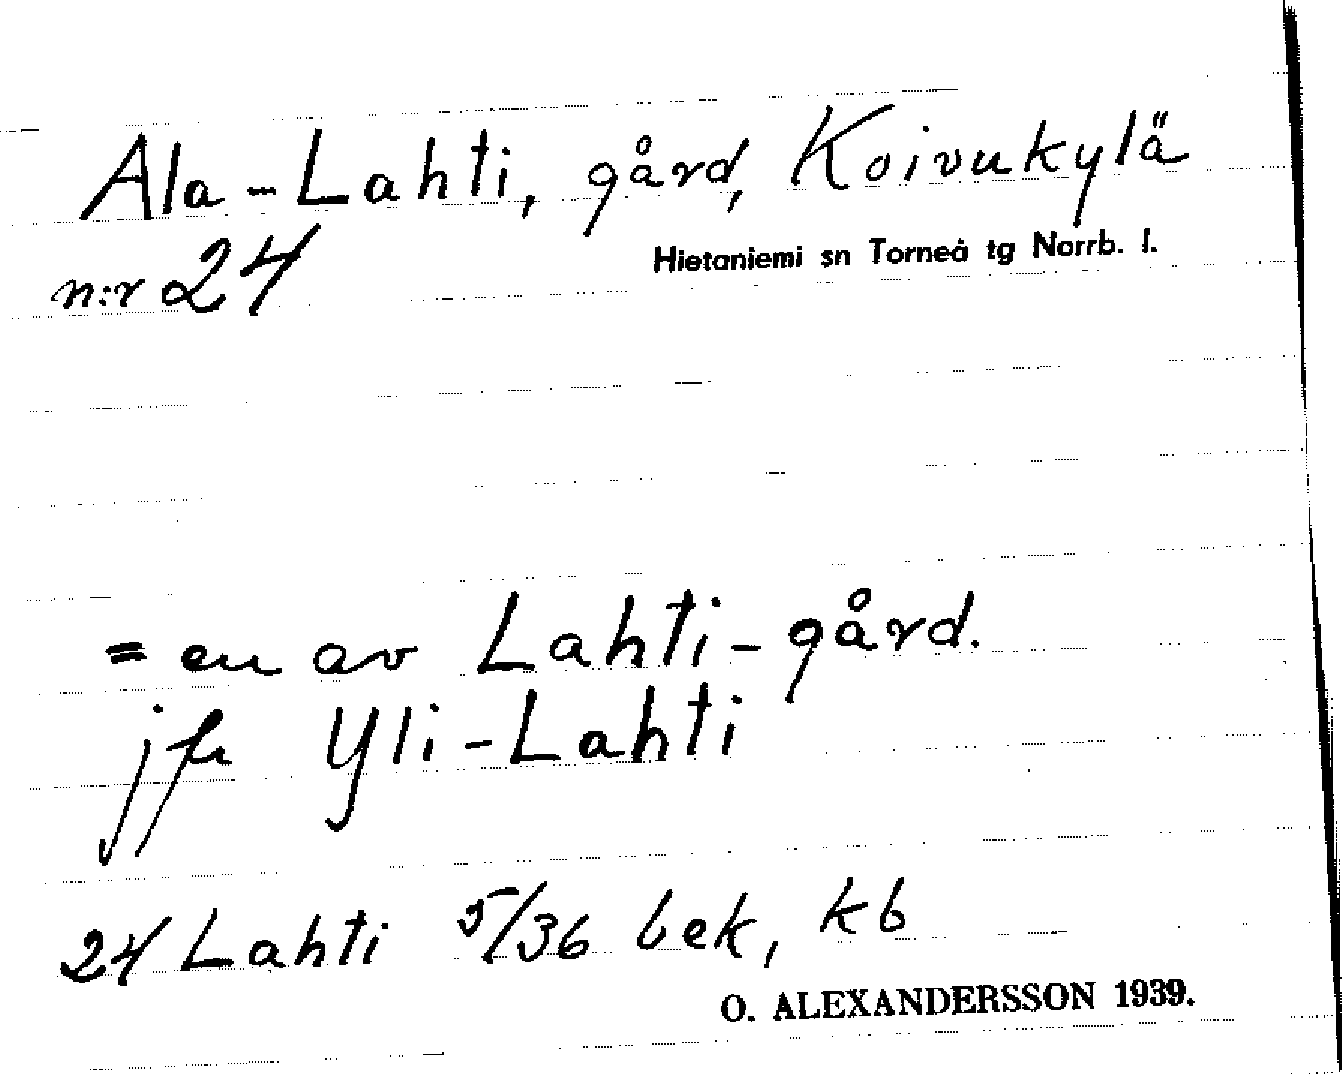 Ala-Lahti, gård, Koivukylä
n:r 24
Hietaniemi sn Torneå tg Norrb. l.
= en av Lahti-gård.
jfr Yli-Lahti
24 Lahti 5/36 bek, kb
O. ALEXANDERSSON 1939.